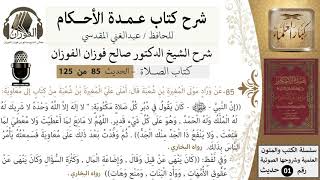 شرح كتاب عمدة الأحكام
للحافظ / عبدالغني المقدسي
شرح الشيخ الدكتور صالح فوزان الفوزان
كتاب الصلاة - الحديث 85 من 125
الفوزان
كبار العلماء
85- عن وراد مولى المغيرة بن شعبة قال: أملى علي المغيرة بن شعبة من كتاب إلى معاوية:
إن النبي ﷺ كان يقول في دبر كل صلاة مكتوبة: لا إله إلا الله وحده لا شريك له
له الملك وله الحمد، وهو على كل شيء قدير، اللهم لا مانع لما أعطيت ولا معطي لما
منعت، ولا ينفع ذا الجد منك الجد. ثم وفدت بعد ذلك على معاوية فسمعته يأمر
الناس بذلك. رواه البخاري.
وفي لفظ: كان ينهى عن قيل وقال، وإضاعة المال، وكثرة السؤال وكان ينهى عن
عقوق الأمهات، ووأد البنات، ومنع وهات. رواه البخاري
سلسلة الكتب والمتون
العلمية وشروحها الصوتية
رقم 01 حديث